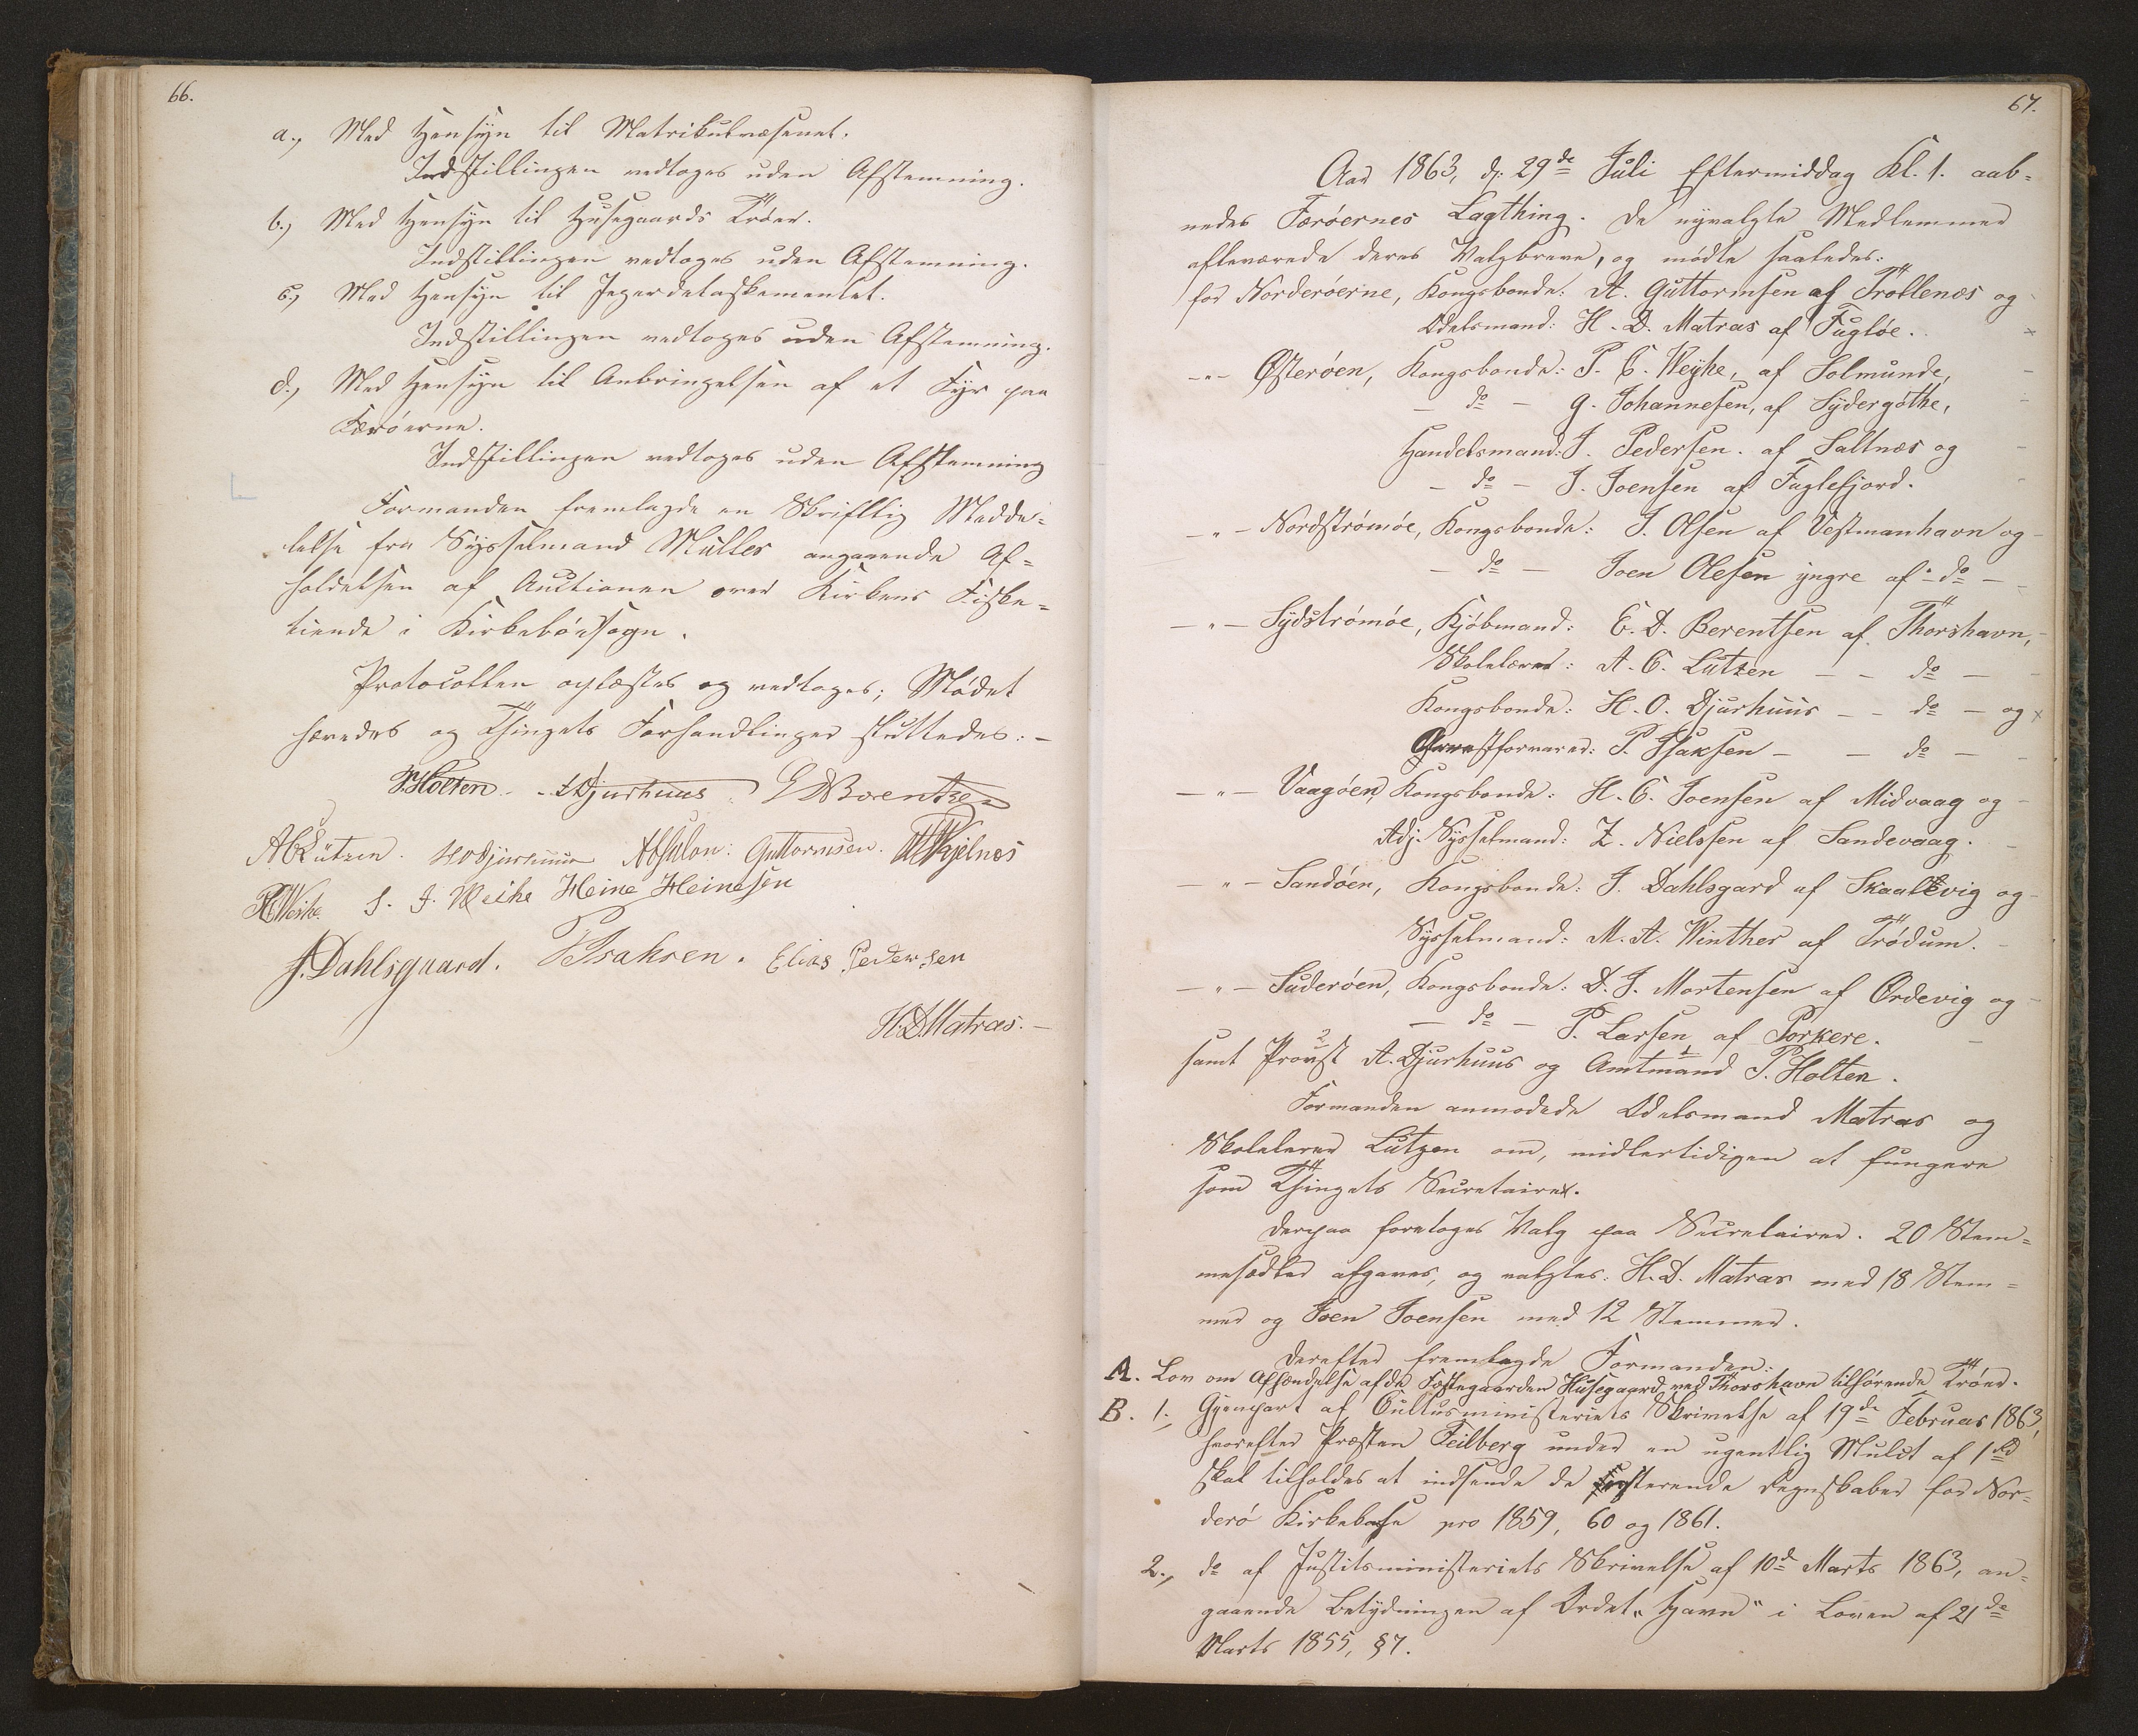 66.
a., Med Hensyn til Matrikulvæsenet.
Indstillingen vedtoges uden Afstemning.
b., Med Hensyn til Husegaards Trøer.
Indstillingen vedtoges uden Afstemning.
c., Med Hensyn til Jægerdetaskementet.
Indstillingen vedtoges uden Afstemning.
d., Med Hensyn til Anbringelsen af et Fyr paa
Færøerne.
Indstillingen vedtoges uden Afstemning
Formanden fremlagde en Skriftlig Medde-
lelse fra Sysselmand Müller angaaende Af-
holdelsen af Auctionen over Kirkens Fiske-
tiende i Kirkebøe Sogn.
Protocollen oplæstes og vedtoges; Mødet
hævedes og Thingets Forhandlinger sluttedes. -
P. Holten. Djurhuus. E D Bærentzen
A C Lützen. H O Djurhuus Absalon Guttormsen.
P C Weihe S. J. Weihe Heine Heinesen
J. Dahlsgaard. P Isaksen. Elias Pedersen
H. D Matras. -
67.
Aar 1863, d: 29de Juli Eftermiddag Kl. 1. aab-
nedes Færøernes Lagthing. De nyvalgte Medlemmer
afleverede deres Valgbreve, og mødte saaledes:
for Norderøerne, Kongsbonde: A. Guttormsen af Trøllenæs og
Odelsmand: H. D. Matras af Fugløe.
- " - Østerøen, Kongsbonde: P. C. Weyhe, af Solmunde,
- do - G. Johannesen, af Sydergøthe,
Handelsmand: J. Pedersen. af Saltnæs og
- do - J. Joensen af Fuglefjord.
- " - Nordstrømøe, Kongsbonde: J. Olsen af Vestmanhavn og
- do - Joen Olesen yngre af - do -
- " - Sydstrømøe, Kjøbmand: E. D. Berentsen af Thorshavn,
Skolelærer: A. C. Lützen - - do -
Kongsbonde: H. O. Djurhuus - - do - og
Arrestforvarer: P. Isaksen - - do -
- " - Vaagøen, Kongsbonde: H. C. Joensen af Midvaag og
Adj. Sysselmand: Z. Nielssen af Sandevaag.
- " - Sandøen, Kongsbonde: J. Dahlsgard af Skaalevig og
Sysselmand: M. A. Winther af Trødum.
- " - Suderøen, Kongsbonde: D. J. Mortensen af Ordevig og
- do - P. Larsen af Porkere.
samt Provst A. Djurhuus og Amtmand P. Holten.
Formanden anmodede Odelsmand Matras og
Skolelærer Lützen om, midlertidigen at fungere
som Thingets Secretairer.
Derpaa foretoges Valg paa Secretairer. 20 Stem-
mesedler afgaves, og valgtes: H. D. Matras med 18 Stem-
mer og Joen Joensen med 12 Stemmer.
Derefter fremlagde Formanden:
A. Lov om Afhændelse af de Fæstegaarden Husegaard ved Thorshavn tilhørende Trøer.
B. 1., Gjenpart af Cultusministeriets Skrivelse af 19de Februar 1863,
hvorefter Præsten Feilberg under en ugentlig Mulct af 1 rd
skal tilholdes at indsende de resterende Regnskaber for Nor-
derø Kirkekasse pro 1859, 60 og 1861.
2., do af Justitsministeriets Skrivelse af 10de Marts 1863, an-
gaaende Betydningen af Ordet "Havn" i Loven af 21de
Marts 1855, § 7.